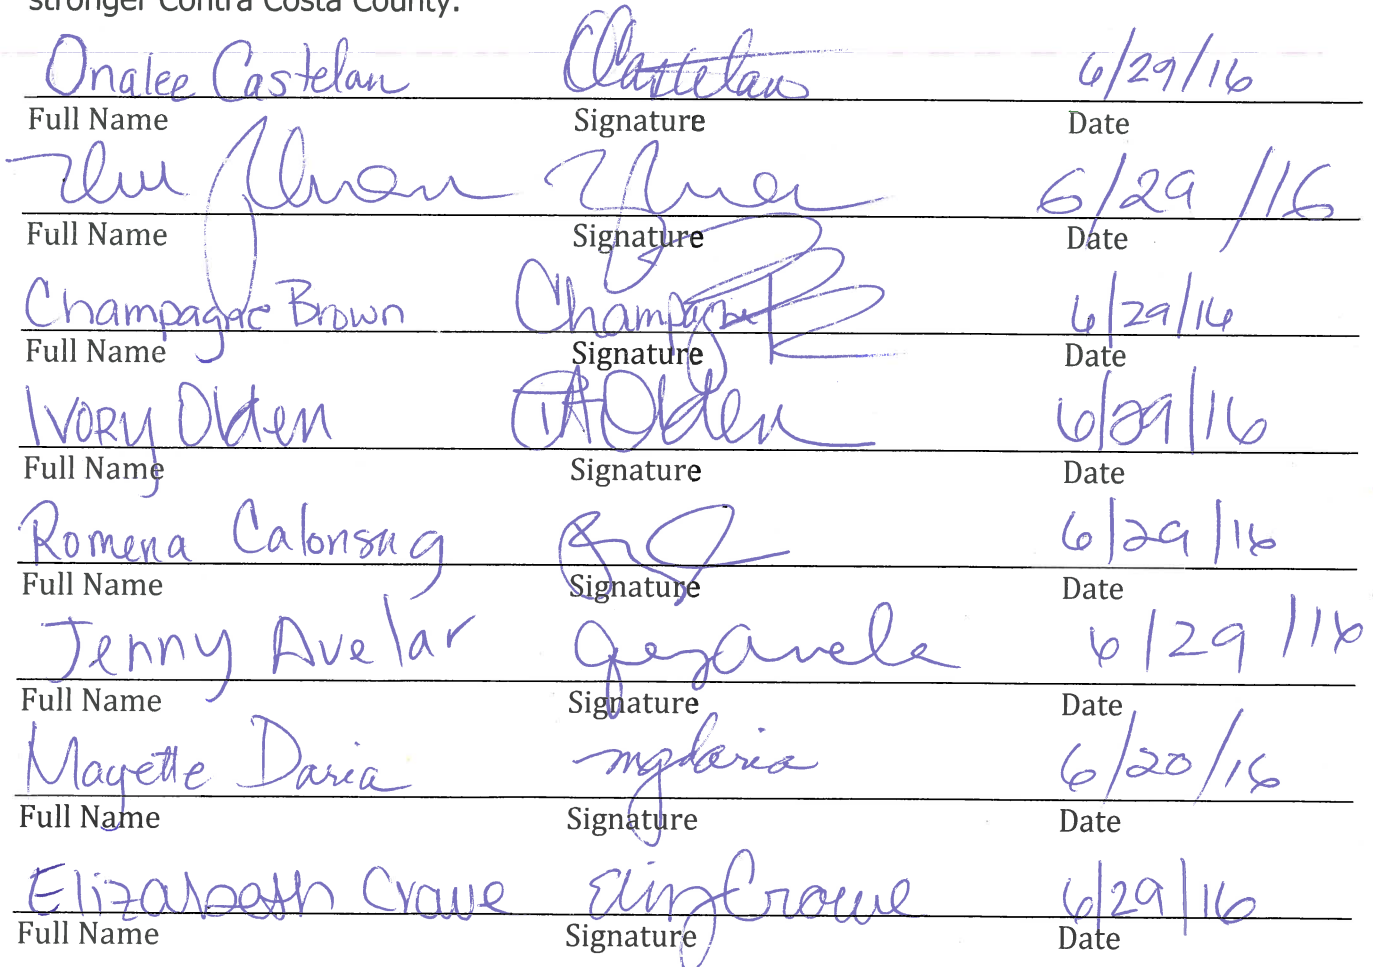 stronger Contra Costa County.
Onalee Castelan OCastelan 6/29/16
Full Name Signature Date
6/29/16
Full Name Signature Date
Champagne Brown Champagne B 6/29/16
Full Name Signature Date
Ivory Olden Olden 6/29/16
Full Name Signature Date
Romena Calonsag 6/29/16
Full Name Signature Date
Jenny Avelar 6/29/16
Full Name Signature Date
Mayette Daria mgdaria 6/20/16
Full Name Signature Date
Elizabeth Crowe Eliz Crowe 6/29/16
Full Name Signature Date